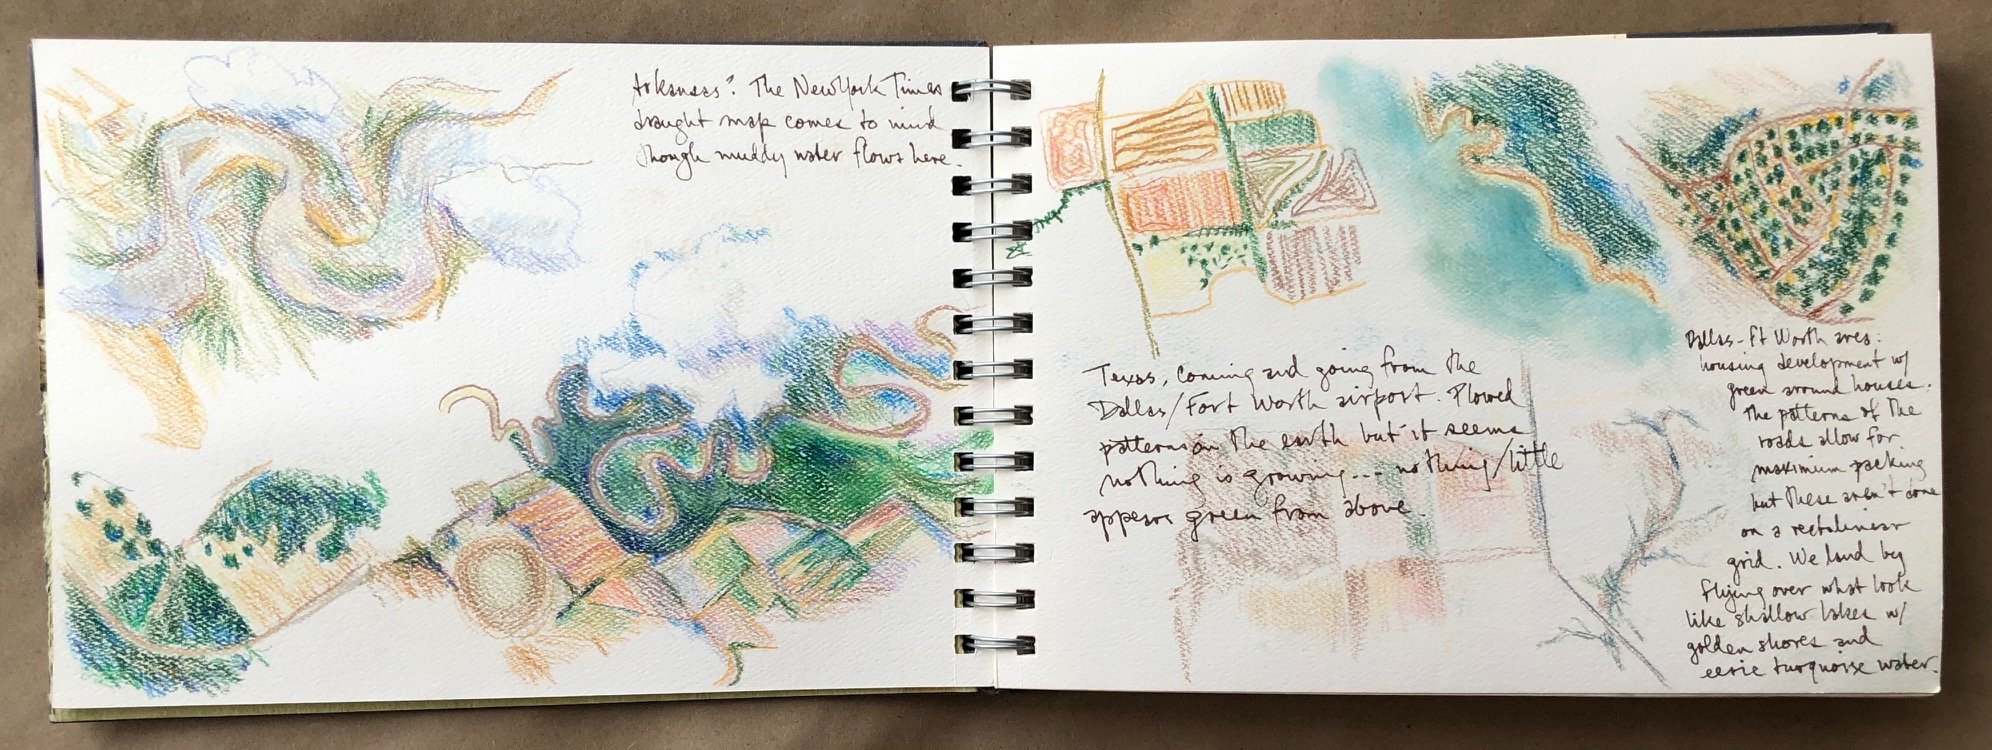 Arkansas? The New York Times
draught map comes to mind
though muddy water flows here.
Texas, coming and going from the
Dallas/Fort Worth airport. Plowed
patterns on the earth but it seems
nothing is growing... nothing/little
appears green from above.
Dallas-Ft Worth area:
housing development w/
green around houses.
The patterns of the
roads allow for
maximum packing
but these aren't done
on a rectalinear
grid. We land by
flying over what look
like shallow lakes w/
golden shores and
eerie turquoise water.